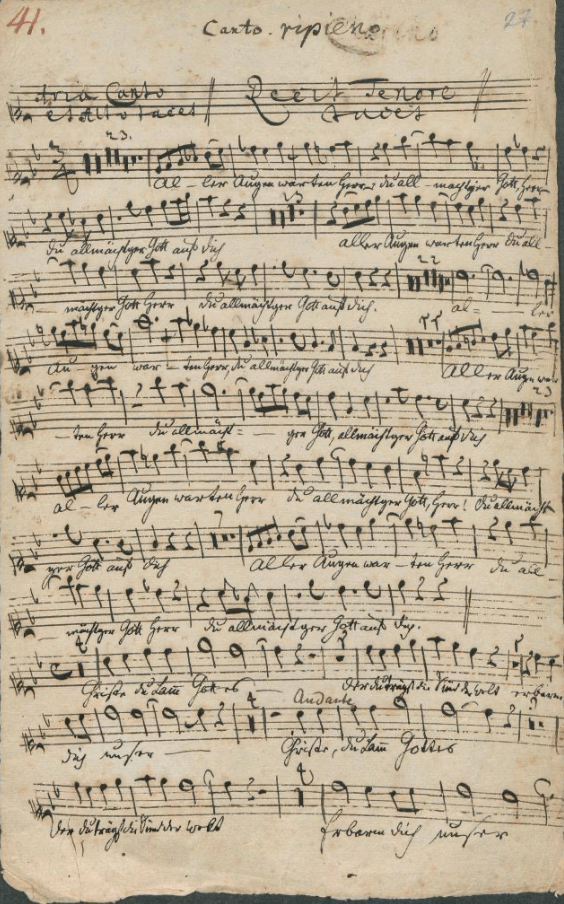 41. Canto. ripieno 27
Aria Canto Recit Tenore
et Alto tacet tacet
23.
Al- ler Augen warten Herr, du all- mächtger Gott, Herr
13.
du allmächtger Gott auf dich aller Augen warten Herr du all-
22
mächtger Gott Herr du allmächtger Gott auf dich. al- ler
Au- gen war- ten Herr, du allmächtger Gott auf dich Aller Augen war
23
- ten Herr du allmächt- - gen Gott, allmächtger Gott auf dich
al- ler Augen warten Herr du allmächtger Gott, Herr! du allmächt
7.
ger Gott auf dich Aller Augen war- ten Herr du all-
- mächtger Gott Herr du allmächtger Gott auf dich.
Christe du Lam Gottes der du trägst die Sünd der Welt erbarm
Andante
4
dich unser - Christe, du Lam Gottes
Der du trägst die Sünd der Welt Erbarm dich unser